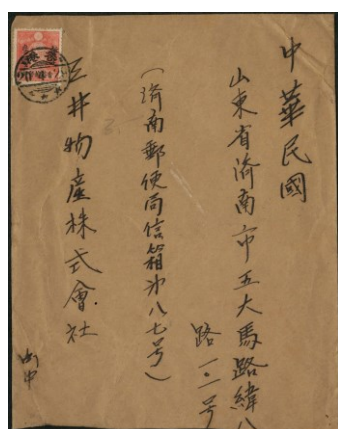 中華民國
山東省濟南市五大馬路緯八
路 号
(濟南郵便局信箱第八七号)
三井物産株式會社